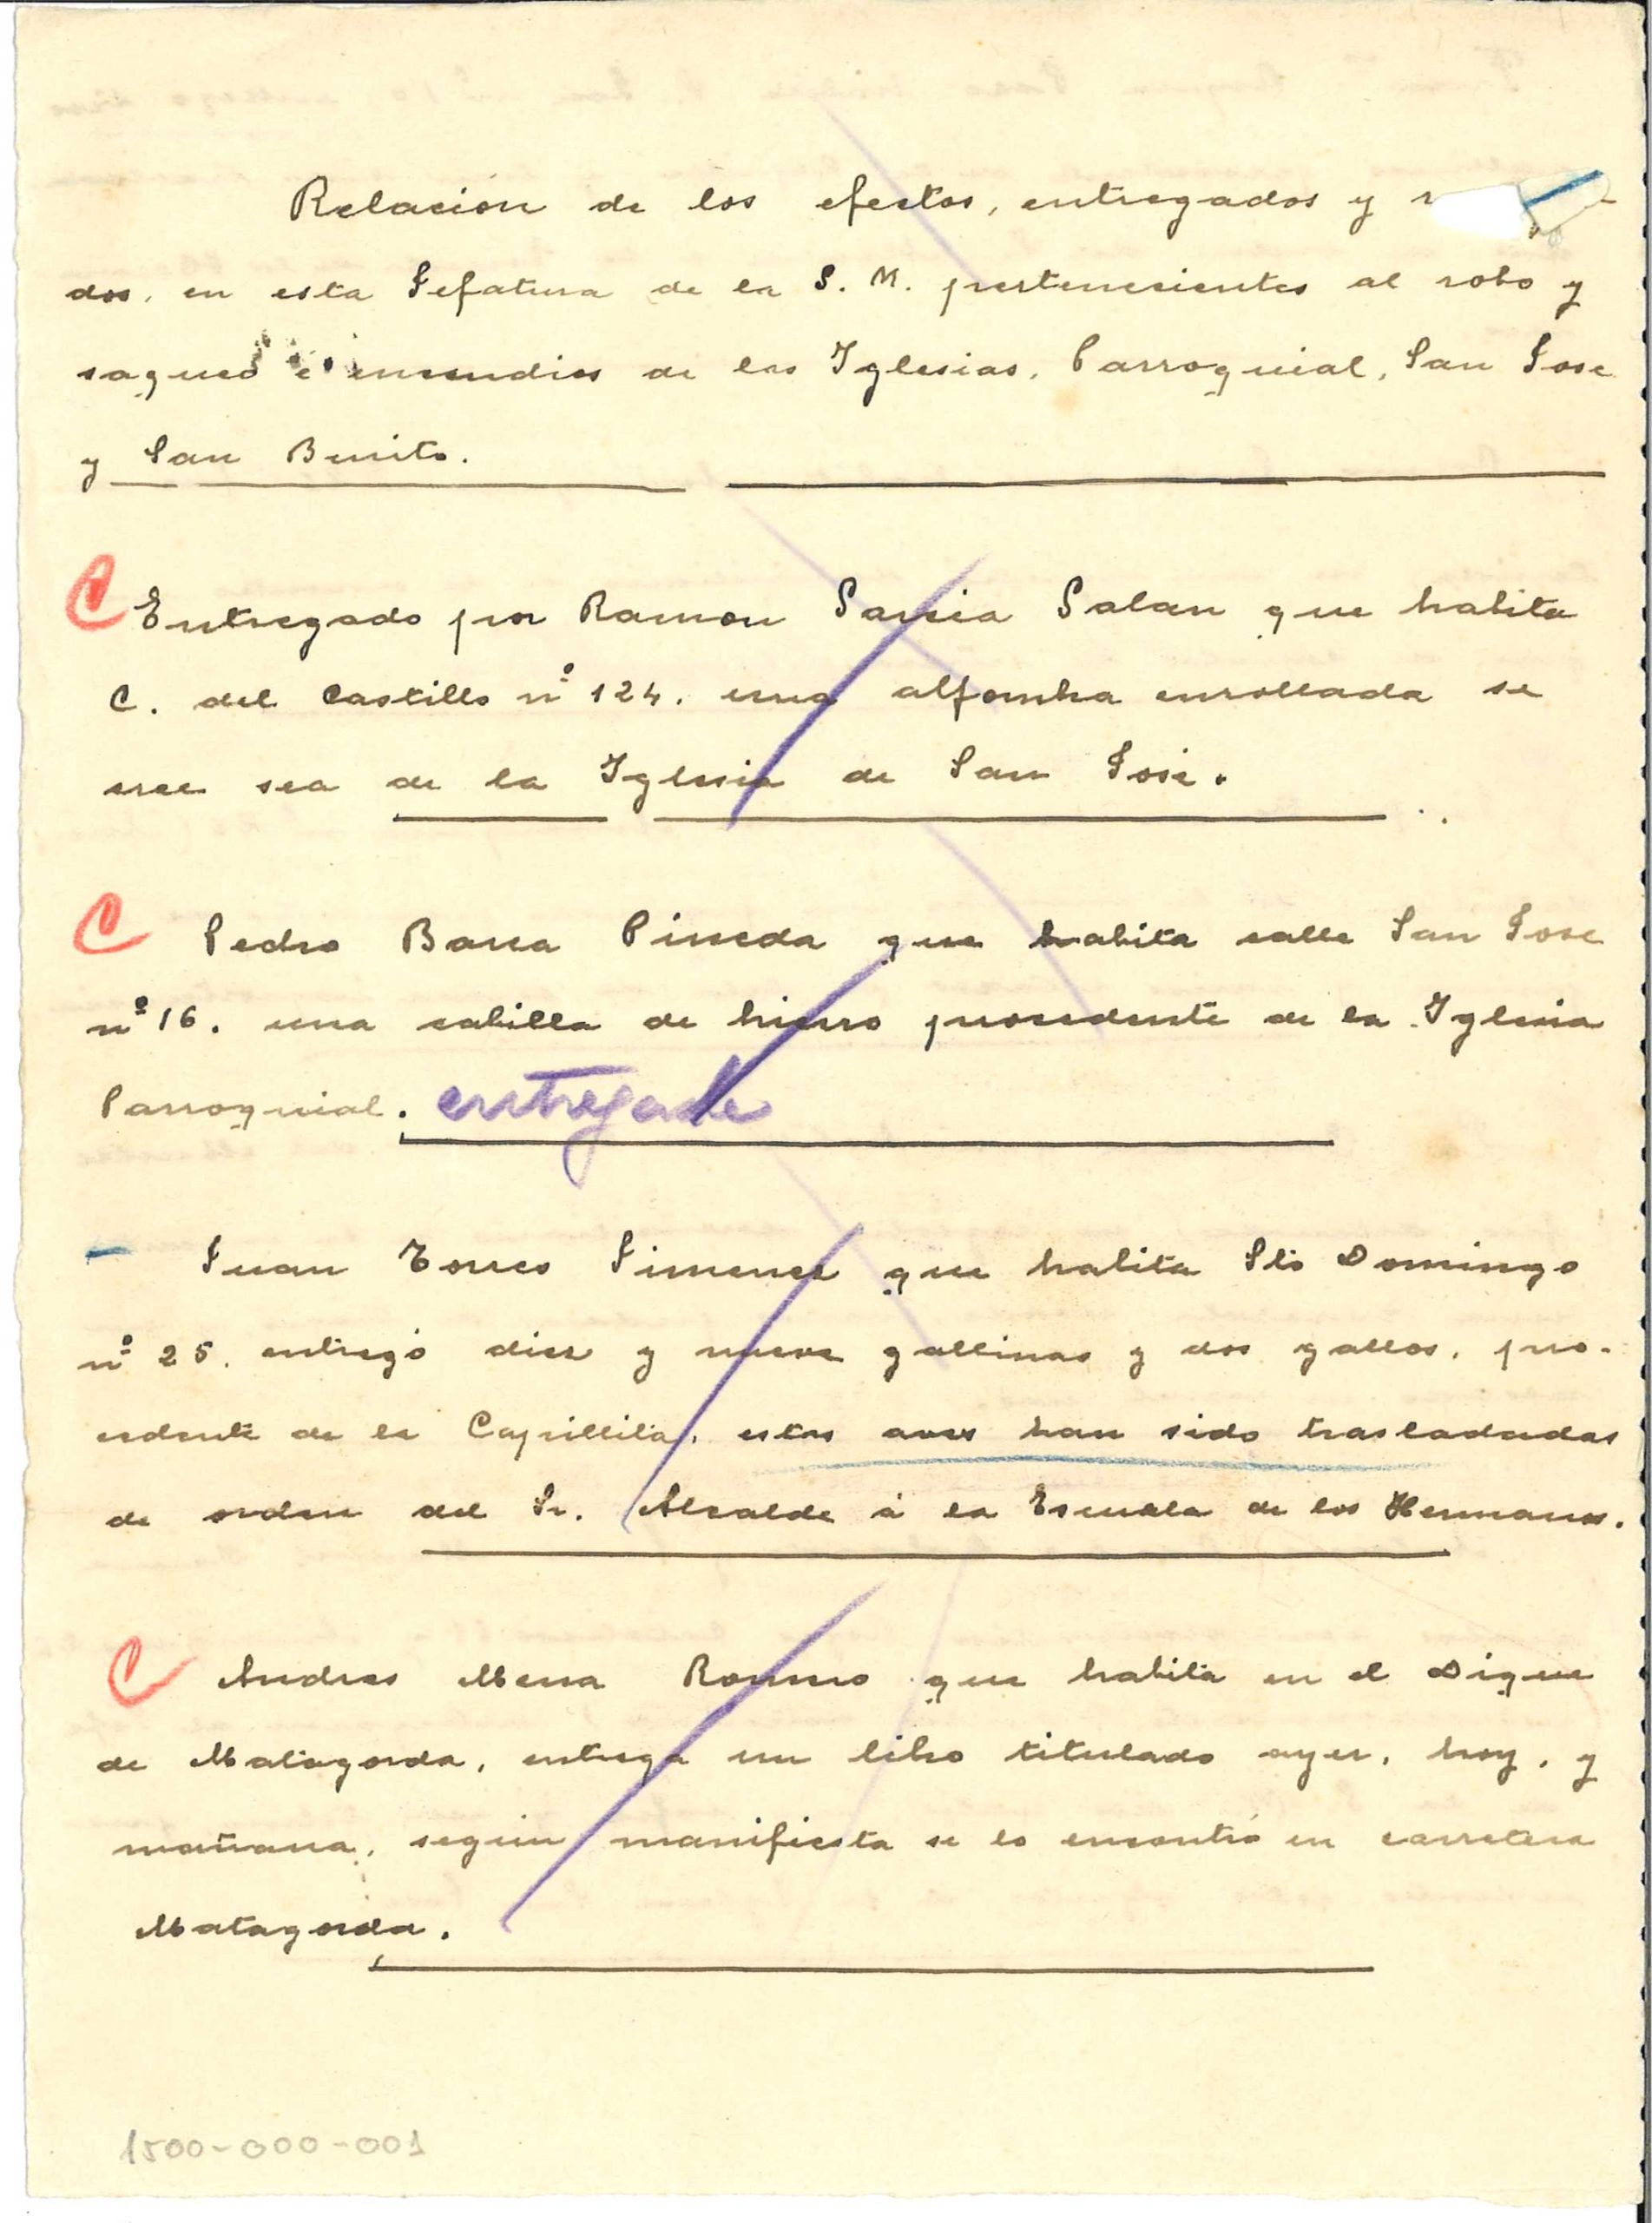 Relación de los efectos, entregados y
dos, en esta Jefatura de la G. M. pertenecientes al robo y
saqueo e incendios de las Iglesias, Parroquial, San Jose
y San Benito.
C Entregado por Ramon Garcia Galan que habita
C. del Castillo nº 124. una alfombra enrollada se
cree sea de la Iglesia de San José.
C Pedro Barea Pineda que habita calle San Jose
nº 16. una cabilla de hierro procedente de la Iglesia
Parroquial. entregado
- Juan Torres Jimenez que habita Sto Domingo
nº 25. entregó diez y nueve gallinas y dos gallos, pro-
cedente de la Capillita, estas aves han sido trasladadas
de orden del Sr. Alcalde á la Escuela de los Hermanos.
C Andres Mena Romero que habita en el Dique
de Matagorda, entrega un libro titulado ayer, hoy, y
mañana, según manifiesta se lo encontró en carretera
Matagorda.
1500-000-001